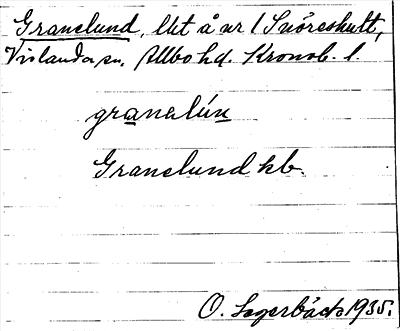 Granelund, lht å nr 1 Snöreskult,
Vislanda sn. Allbo hd. Kronob. l.
granalún
Granelund kb.
O. Lagerbäck 1935.